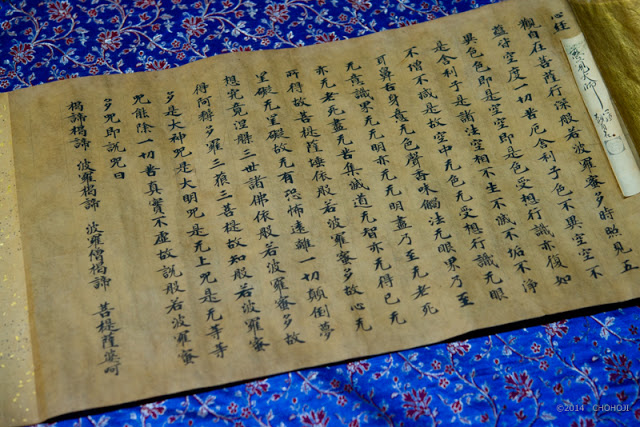 心経
觀自在菩薩行深般若波羅蜜多時照見五
蘊皆空度一切苦厄舍利子色不異空空不
異色色即是空空即是色受想行識亦復如
是舍利子是諸法空相不生不滅不垢不淨
不增不減是故空中无色无受想行識无眼
耳鼻舌身意无色聲香味觸法无眼界乃至
无意識界无无明亦无无明盡乃至无老死
亦无老死盡无苦集滅道无智亦无得已无
所得故菩提薩埵依般若波羅蜜多故心无
罣礙无罣礙故无有恐怖遠離一切顛倒夢
想究竟涅槃三世諸佛依般若波羅蜜多故
得阿耨多羅三藐三菩提故知般若波羅蜜
多是大神呪是大明呪是无上呪是无等等
呪能除一切苦真實不虛故説般若波羅蜜
多呪即説呪曰
揭諦揭諦 波羅揭諦 波羅僧揭諦 菩提薩婆呵
大師
©2014 CHOHOJI